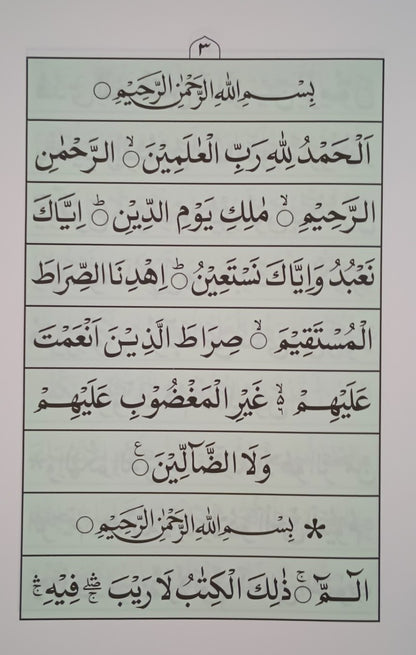 ٣
بِسْــمِ اللهِ الرَّحْمٰنِ الرَّحِيْمِ ○
اَلْحَمْدُ لِلّٰهِ رَبِّ الْعٰلَمِيْنَ ○ۙ الرَّحْمٰنِ
الرَّحِيْمِ ○ۙ مٰلِكِ يَوْمِ الدِّيْنِ ○ؕ اِيَّاكَ
نَعْبُدُ وَاِيَّاكَ نَسْتَعِيْنُ ○ؕ اِهْدِنَا الصِّرَاطَ
الْمُسْتَقِيْمَ ○ۙ صِرَاطَ الَّذِيْنَ اَنْعَمْتَ
عَلَيْهِمْ ۙ۬ غَيْرِ الْمَغْضُوْبِ عَلَيْهِمْ
وَلَا الضَّآلِّيْنَ ○ع
* بِسْــمِ اللهِ الرَّحْمٰنِ الرَّحِيْمِ ○
الٓـمّٓ ○ۚ ذٰلِكَ الْكِتٰبُ لَا رَيْبَ ۛۖ فِيْهِ ۛۚ